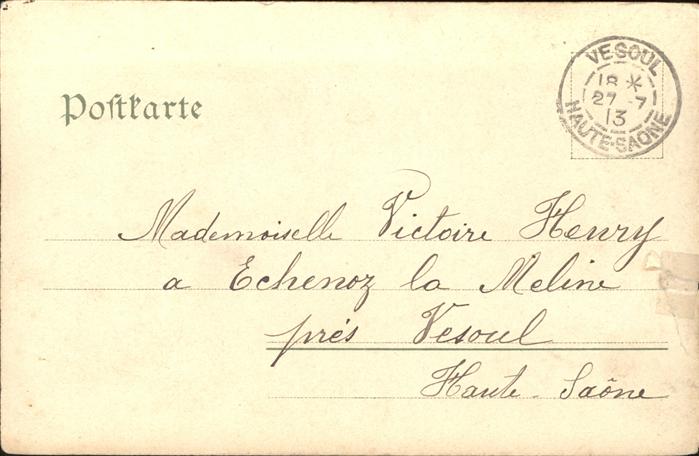 Postkarte
VESOUL
18 *
27 -7
13
HAUTE-SAONE
Mademoiselle Victoire Henry
a Echenoz la Meline
prés Vesoul
Haute-Saône